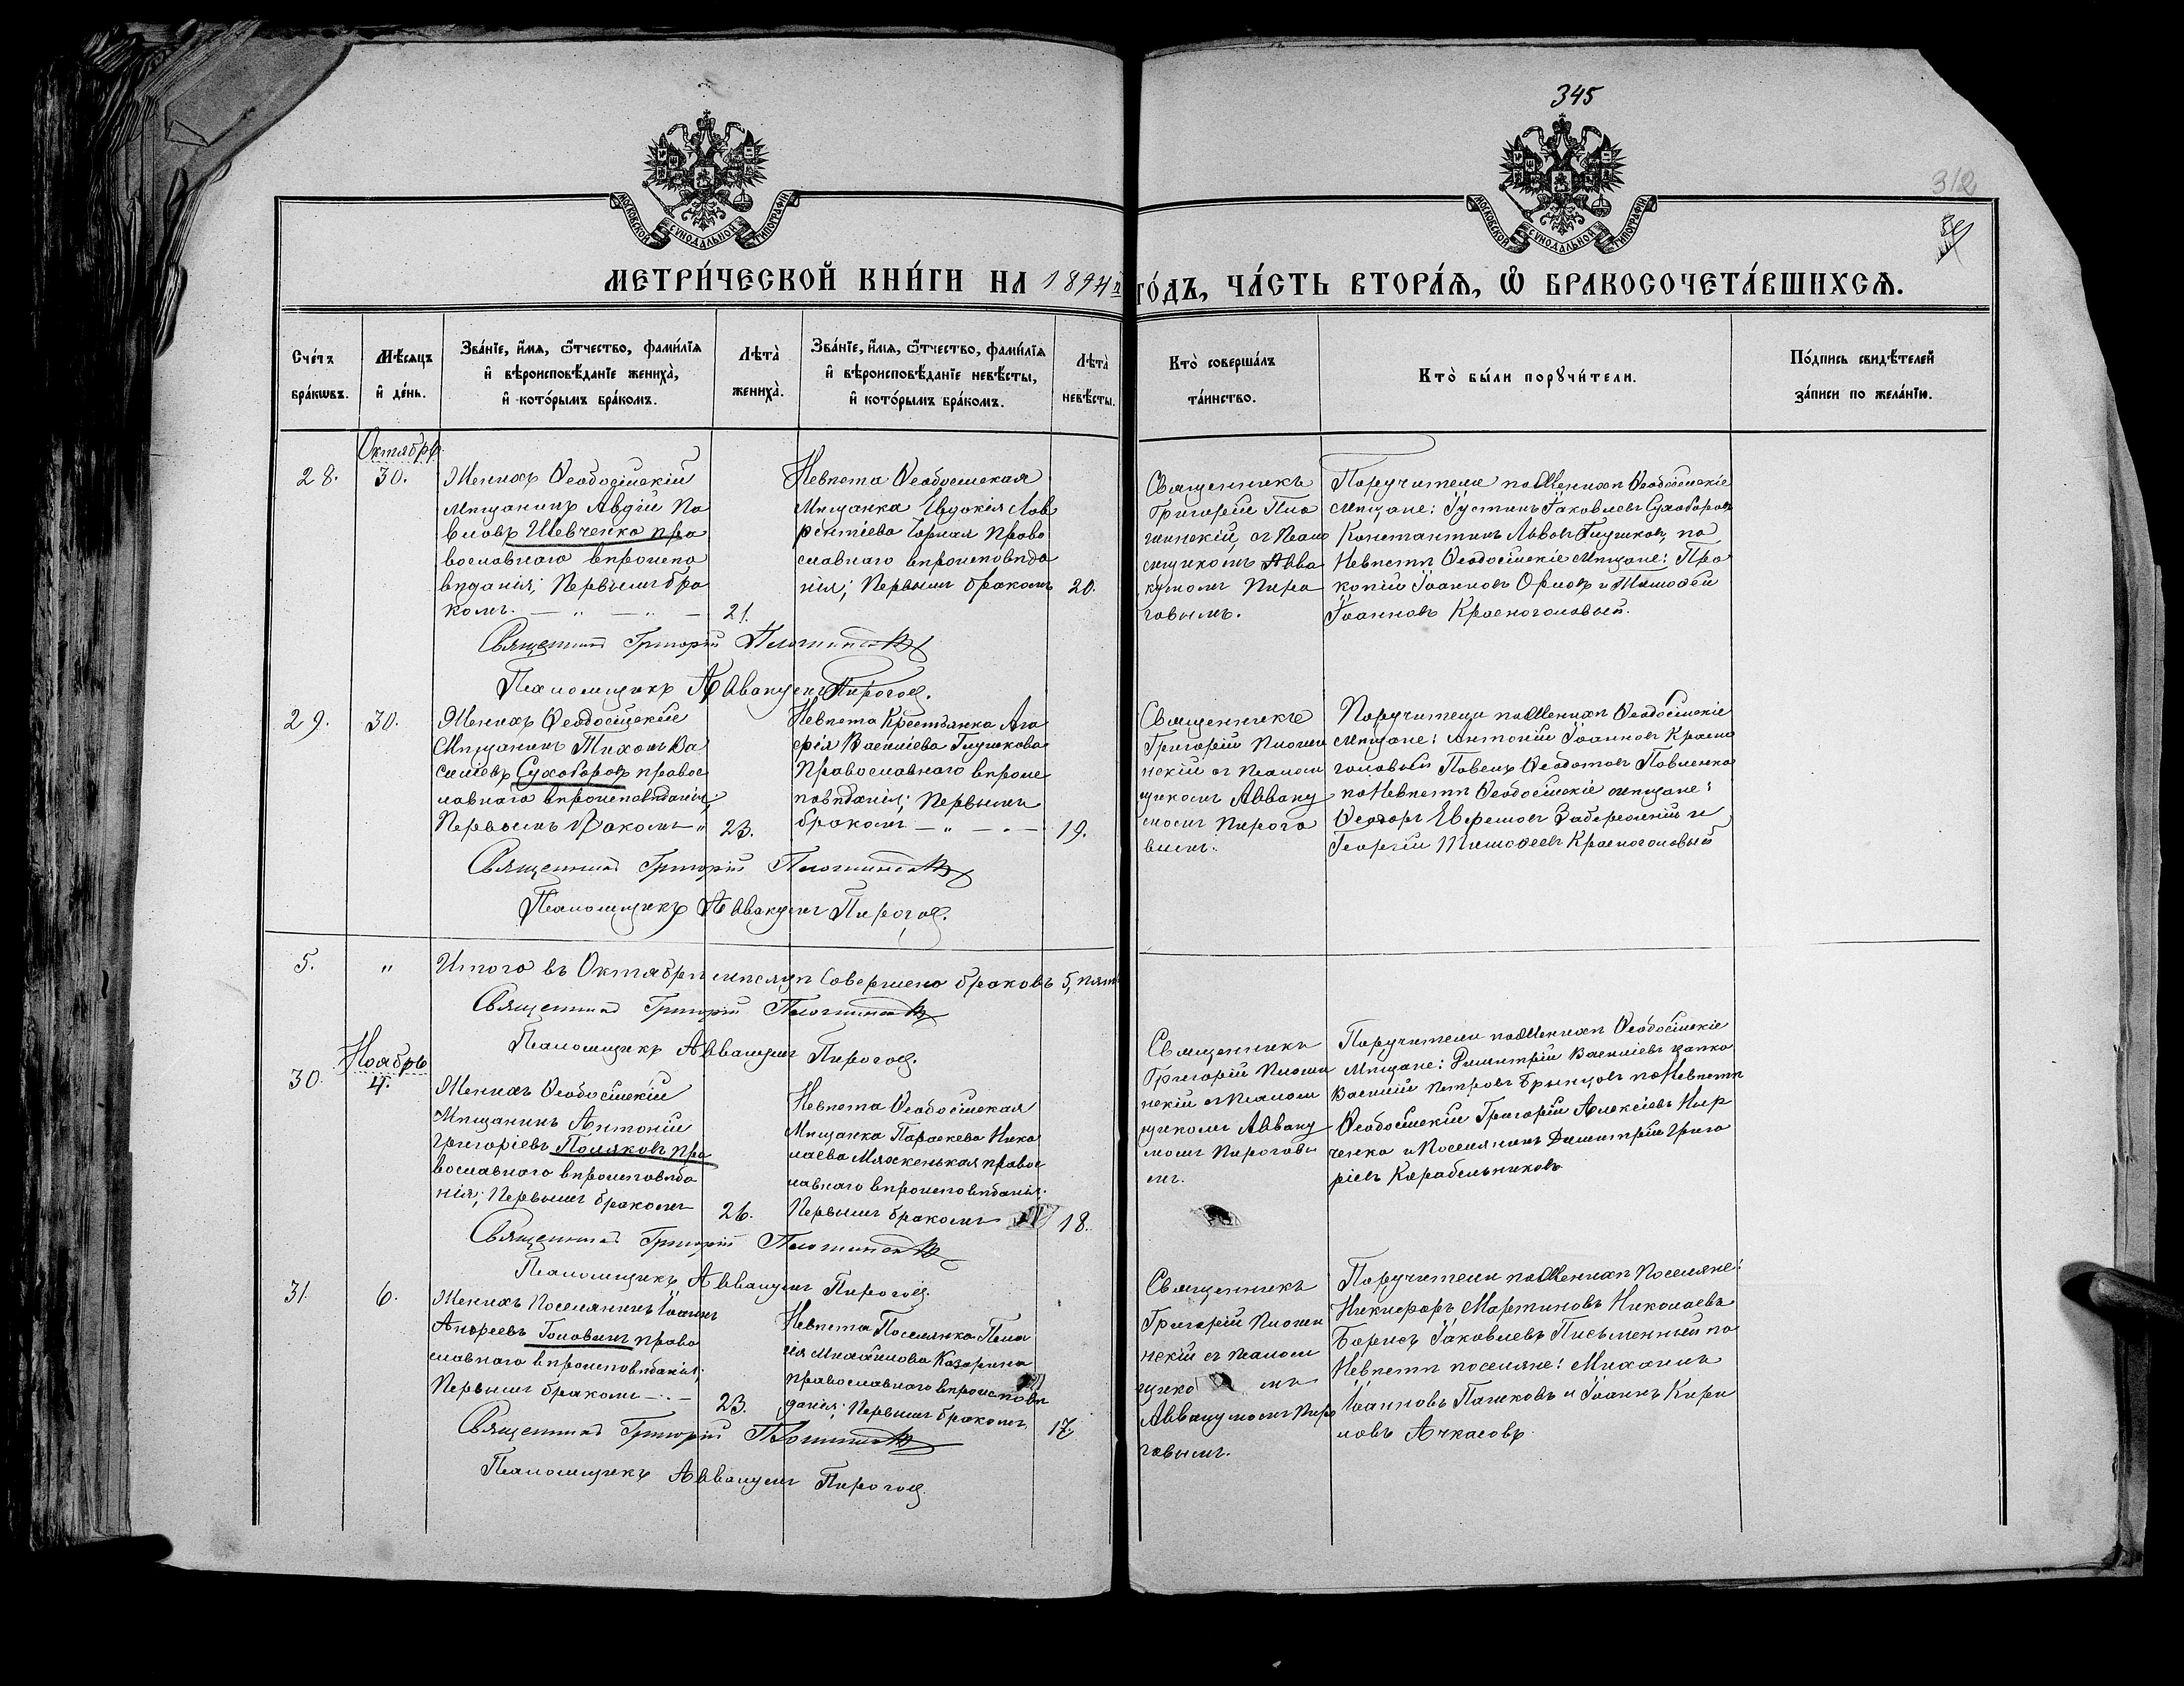 345
312
МОСКОВСКОЙ СѴНОДАЛЬНОЙ ТИПОГРАФІИ
МОСКОВСКОЙ СѴНОДАЛЬНОЙ ТИПОГРАФІИ
МЕТРИ́ЧЕСКОЙ КНИ́ГИ НА 1894й ГО́ДЪ, ЧА́СТЬ ВТОРА́Ѧ, Ѽ БРАКОСОЧЕТА́ВШИХСѦ.
Сче́тъ бра́кωвъ.
Мѣ́сяцъ и҆ де́нь.
Зва́нїе, и҆́мѧ, ѻ҆́тчество, фами́лїѧ
и҆ вѣроисповѣ́данїе жениха̀,
и҆ кото́рымъ бра́комъ.
Лѣта̀ жениха̀.
Зва́нїе, и҆́мѧ, ѻ҆́тчество, фами́лїѧ
и҆ вѣроисповѣ́данїе невѣ́сты,
и҆ кото́рымъ бра́комъ.
Лѣта̀ невѣ́сты.
Кто̀ соверша́лъ та́инство.
Кто̀ бы́ли порꙋчи́тели.
По́дпись свидѣ́телей за́писи по жела́нїю.
Октябрь
28. 30.
Женихъ Ѳеодосійскій
Мѣщанинъ Авдій Па
вловъ Шевченко пра
вославнаго вѣроиспо
вѣданія; Первымъ бра
комъ. — „ — „ — 21.
Невѣста Ѳеодосійская
Мѣщанка Евдокія Лав
рентіева Чорная Право
славнаго вѣроисповѣда
нія; Первымъ бракомъ 20.
Священникъ
Григорій Пло
тинскій съ Псало
мщикомъ Авва
кумомъ Пиро
говымъ.
Поручители по Женихѣ Ѳеодосійскіе
мѣщане: Іустинъ Іаковлевъ Сухоборов
Константинъ Львовъ Глушков, по
Невѣстѣ Ѳеодосійскіе мѣщане: Про
копій Іоанновъ Орловъ и Тимоѳей
Іоанновъ Красноголовый.
Священникъ Григорій Плотинскій
Псаломщикъ Аввакумъ Пирогов.
29. 30.
Женихъ Ѳеодосійскій
Мѣщанинъ Тихонъ Ва
силіевъ Сухоборовъ правос
лавнаго вѣроисповѣданія;
Первымъ бракомъ — „ 23.
Невѣста Крестьянка Ага
фія Василіева Глушкова
Православнаго вѣроис
повѣданія; Первымъ
бракомъ — „ — „ — 19.
Священникъ
Григорій Плоти
нскій съ Псалом
щикомъ Авваку
момъ Пирого
вымъ.
Поручители по Женихѣ Ѳеодосійскіе
мѣщане: Антоній Іоанновъ Красно
головый Павелъ Ѳеодотовъ Павленко
по Невѣстѣ Ѳеодосійскіе мѣщане:
Ѳеодоръ Ефремовъ Забережній и
Георгій Тимоѳеевъ Красноголовый
Священникъ Григорій Плотинскій
Псаломщикъ Аввакумъ Пирогов.
5. „ Итого въ Октябрѣ мѣсяцѣ Совершено браковъ 5, пять
Священникъ Григорій Плотинскій
Псаломщикъ Аввакумъ Пирогов.
Ноябрь
30. 4.
Женихъ Ѳеодосійскій
Мѣщанинъ Антоній
Григоріевъ Поляковъ пра
вославнаго вѣроисповѣда
нія; Первымъ бракомъ 26.
Невѣста Ѳеодосійская
Мѣщанка Параскева Нико
лаева Мяхкенькая правос
лавнаго вѣроисповѣданія;
Первымъ бракомъ 18.
Священникъ
Григорій Плоти
нскій съ Псалом
щикомъ Авваку
момъ Пирогов
мъ.
Поручители по Женихѣ Ѳеодосійскіе
Мѣщане: Димитрій Василіевъ Цапко
Василій Петровъ Брынцовъ по Невѣстѣ
Ѳеодосійскій Григорій Алексіевъ Кир
ченко и Поселянинъ Димитрій Григо
ріевъ Карабельниковъ
Священникъ Григорій Плотинскій
Псаломщикъ Аввакумъ Пирогов.
31. 6.
Женихъ Поселянинъ Іоаннъ
Андреевъ Головинъ право
славнаго вѣроисповѣданія;
Первымъ бракомъ — „ — 23.
Невѣста Поселянка Пела
гія Михаилова Казарина
православнаго вѣроисповѣ
данія; Первымъ бракомъ 17.
Священникъ
Григорій Плоти
нскій съ Псалом
щико мъ
Аввакумомъ Пиро
говымъ.
Поручители по Женихѣ Поселяне:
Никифоръ Мартиновъ Николаевъ
Борисъ Іаковлевъ Письменный по
Невѣстѣ поселяне: Михаилъ
Іоанновъ Пашковъ и Іоаннъ Кири
ловъ Ачкасовъ.
Священникъ Григорій Плотинскій
Псаломщикъ Аввакумъ Пирогов.